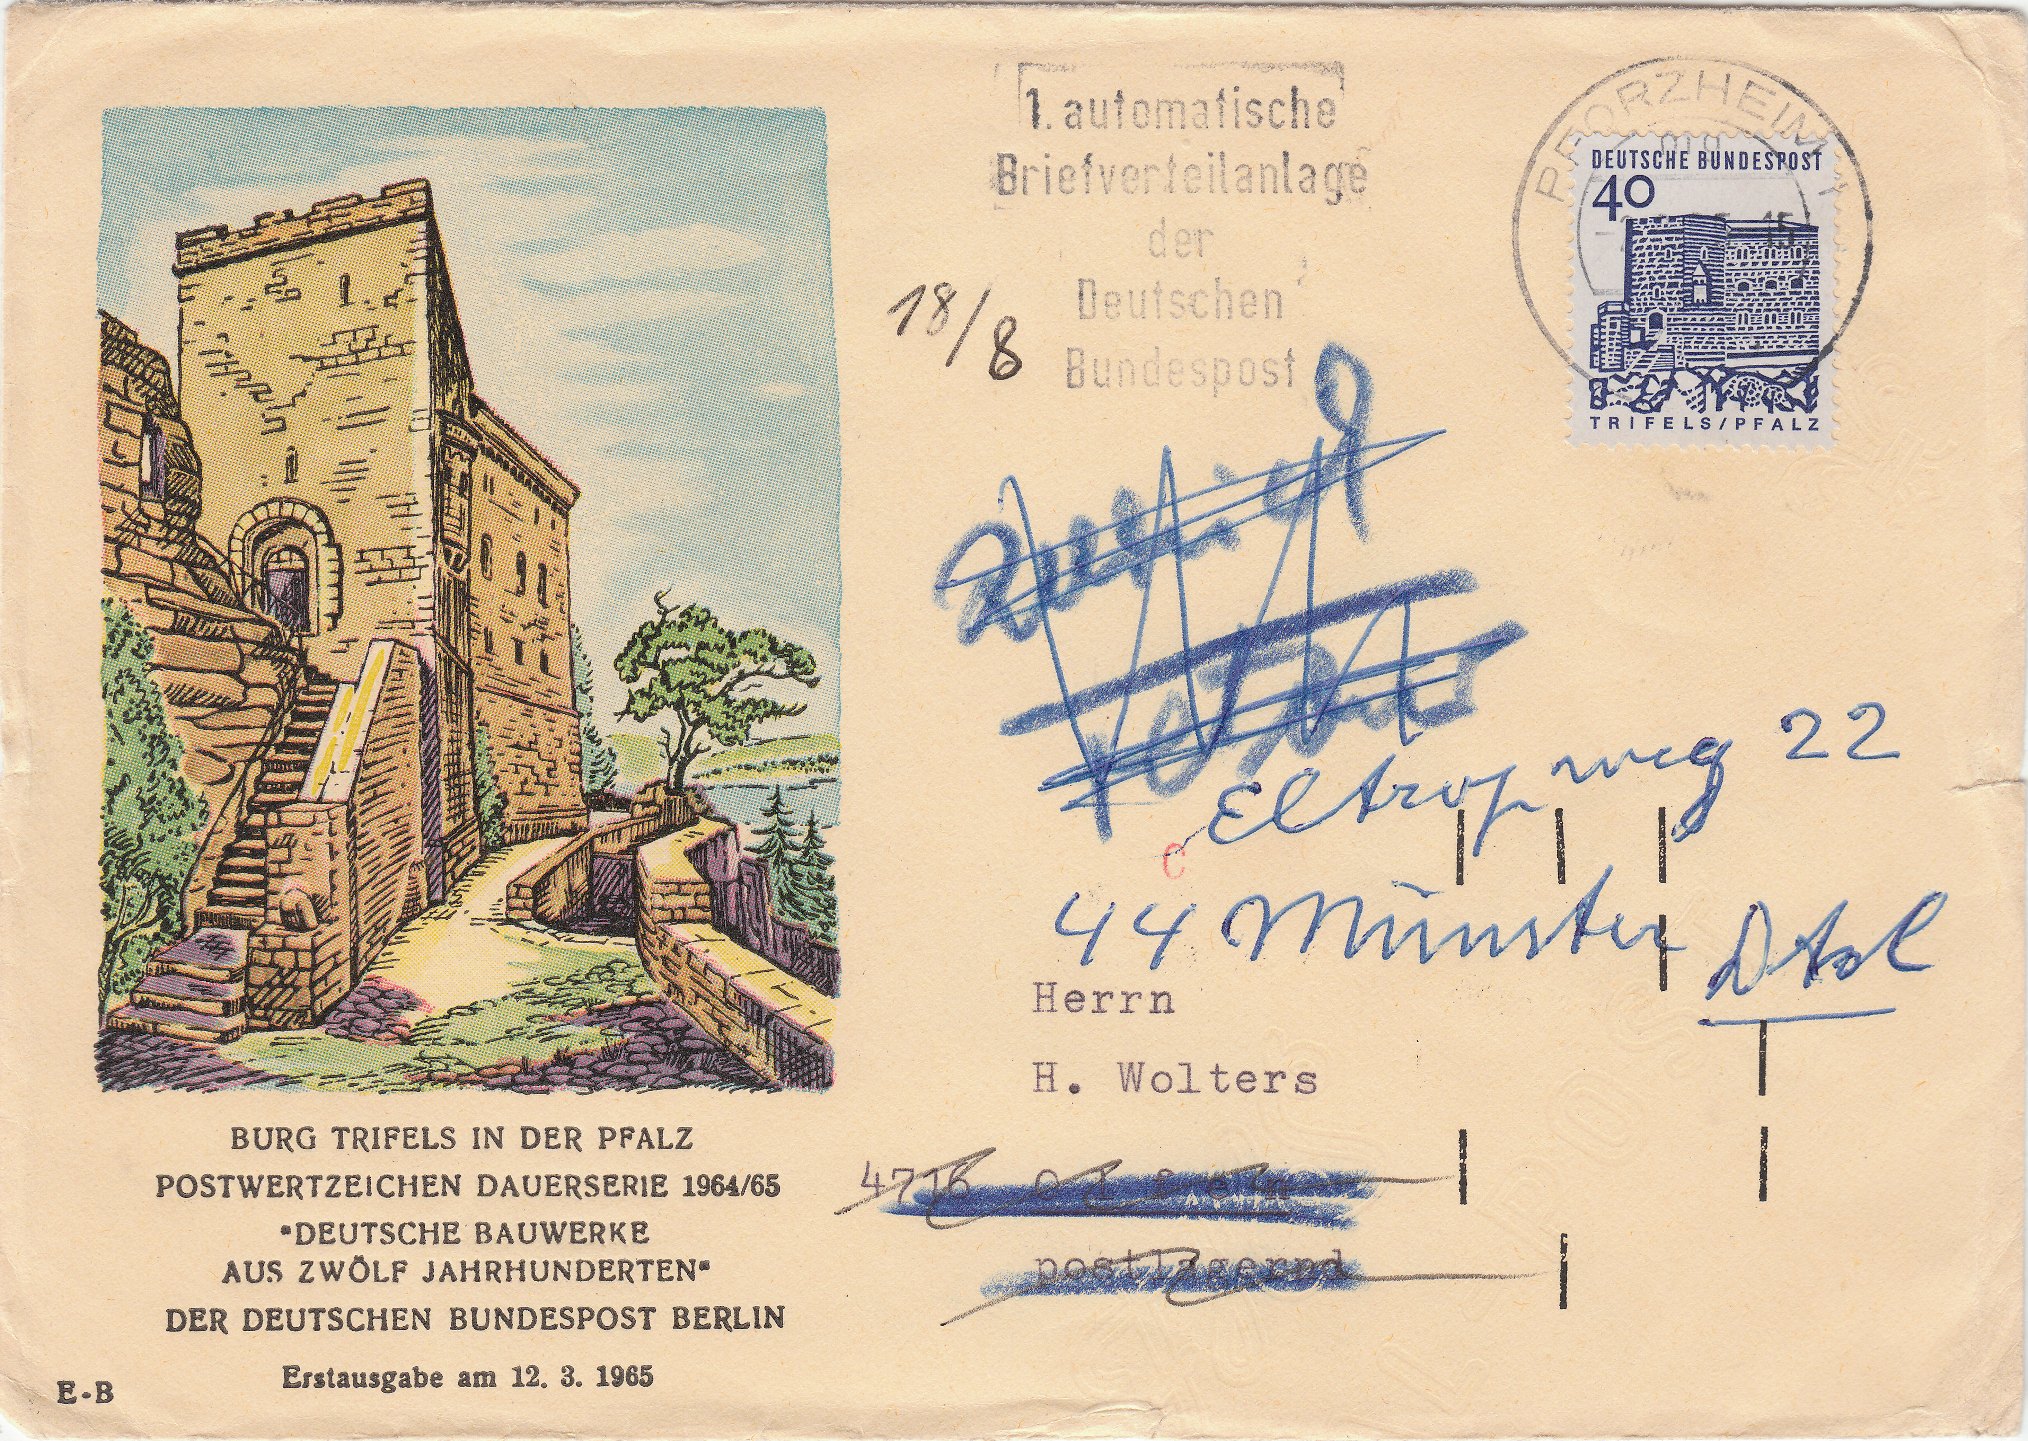 1. automatische
Briefverteilanlage
der
Deutschen
Bundespost
PFORZHEIM
15
DEUTSCHE BUNDESPOST
40
TRIFELS/PFALZ
18/8
zurück
Eltropweg 22
C
44 Münster
Dtzl
Herrn
H. Wolters
4716 Olfen
postlagernd
BURG TRIFELS IN DER PFALZ
POSTWERTZEICHEN DAUERSERIE 1964/65
"DEUTSCHE BAUWERKE
AUS ZWÖLF JAHRHUNDERTEN"
DER DEUTSCHEN BUNDESPOST BERLIN
Erstausgabe am 12. 3. 1965
E-B